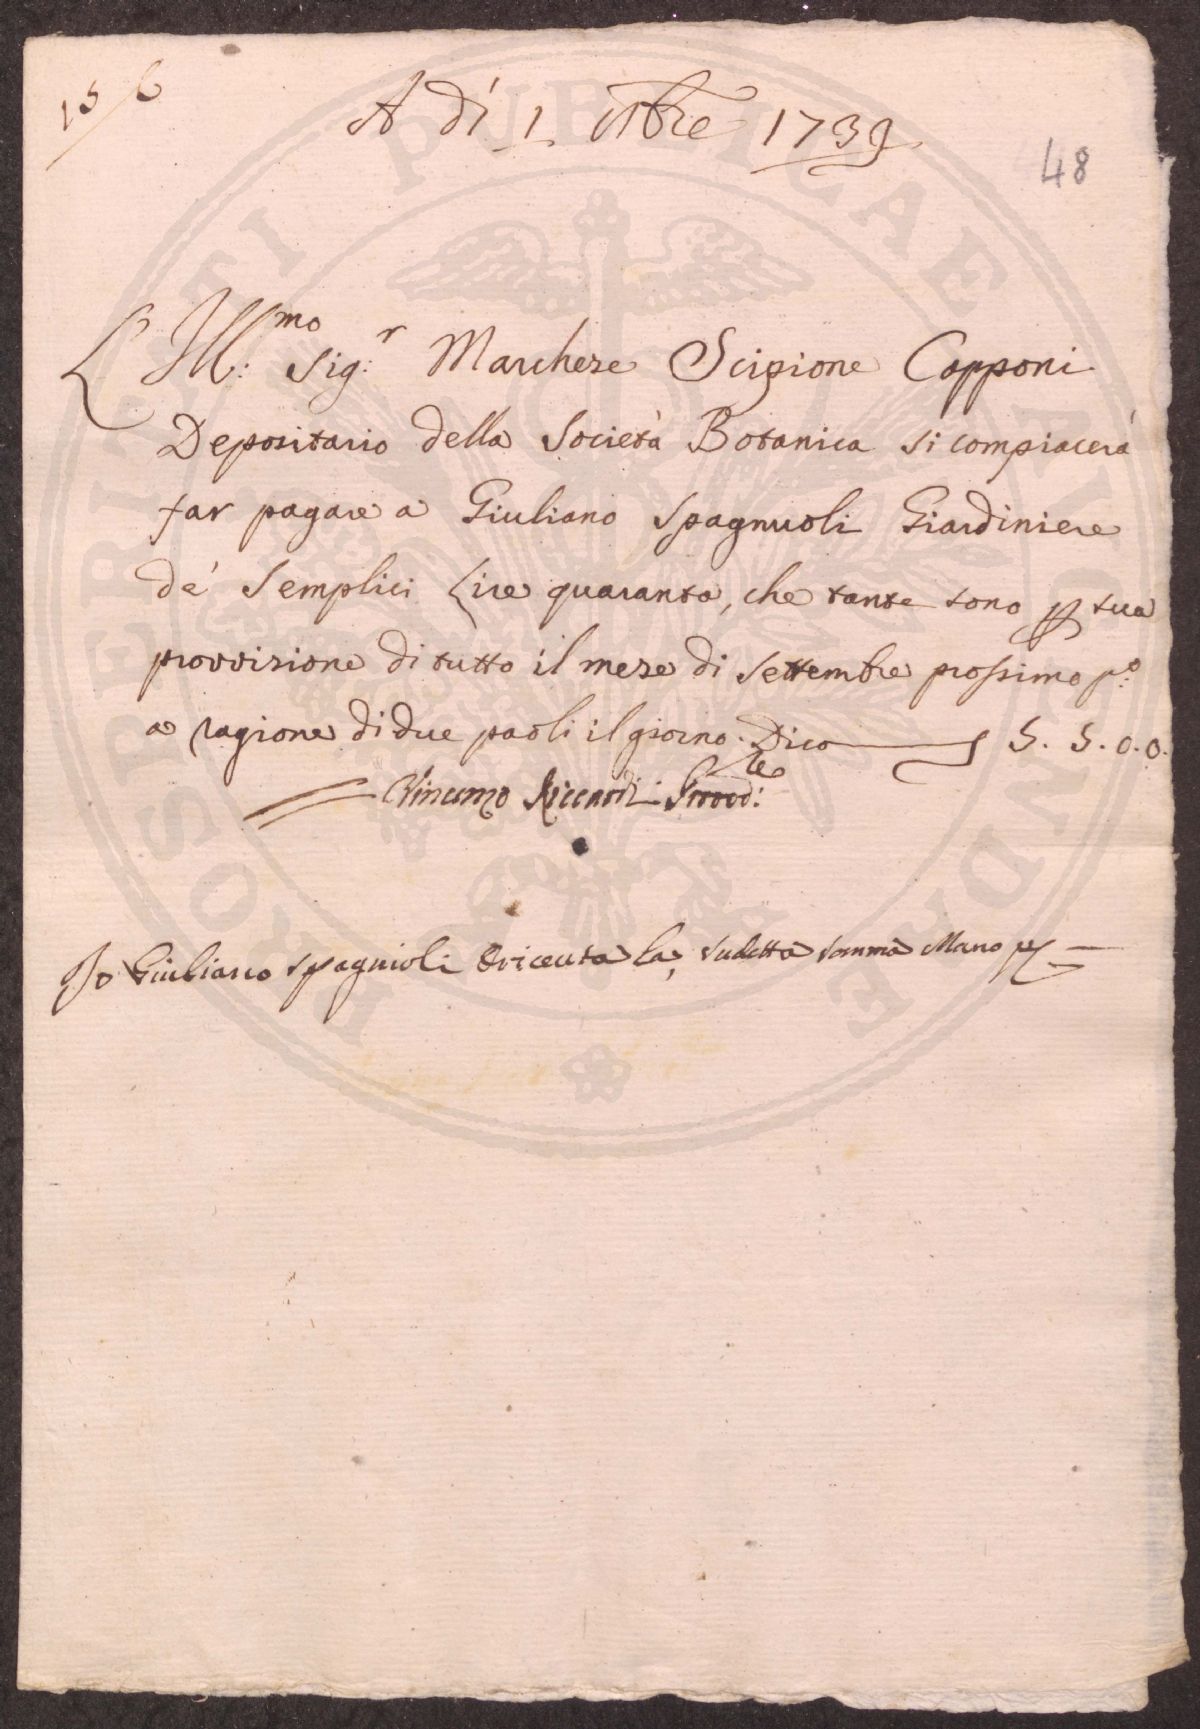 156
A dì 1 8bre 1739
48
L' Ill:mo Sig:r Marchese Scipione Capponi
Depositario della Società Botanica si compiacerà
far pagare a Giuliano Spagnuoli Giardiniere
de' Semplici Lire quaranta, che tante sono p sua
provvisione di tutto il mese di Settembre prossimo p:o
a ragione di due paoli il giorno. Dico 5. 5. 0. 0.
Vincenzo Riccardi
Io Giuliano Spagnioli ò riceuta la sudetta somma Mano pp
PROSPERITATI PUBLICAE AUGENDAE